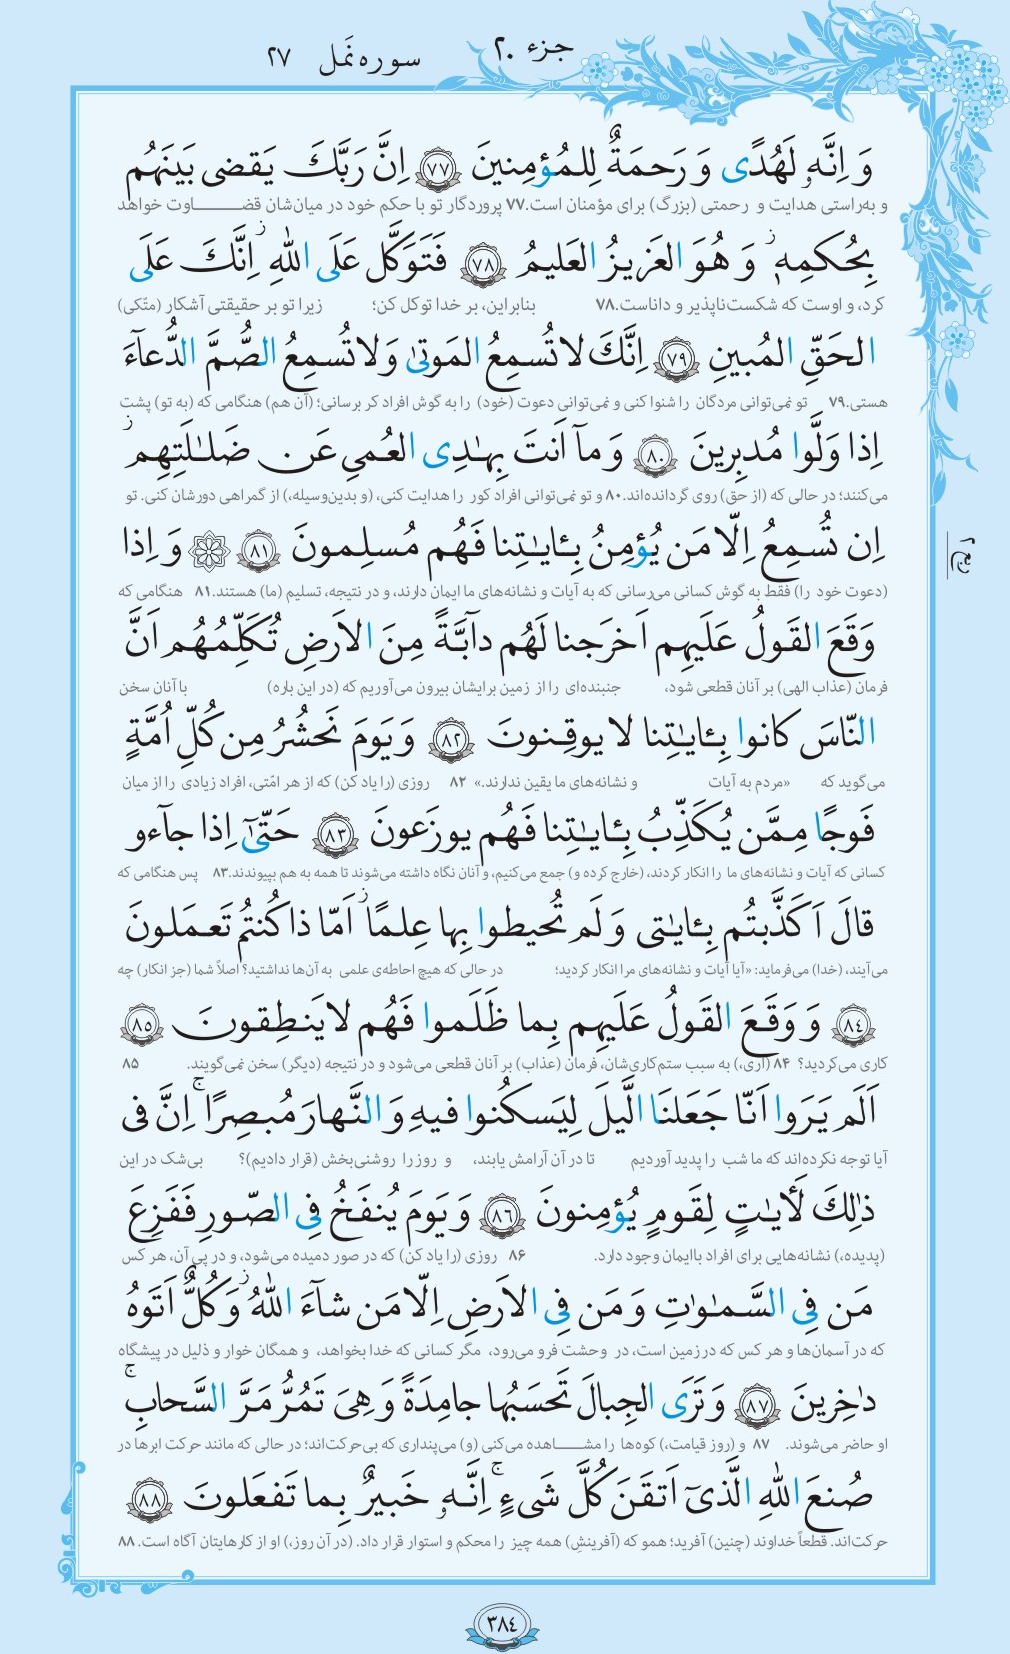 جزء ۲۰
سوره نَمل ۲۷
وَ اِنَّهٗ لَهُدًی وَ رَحمَةٌ لِلمُؤمِنینَ ﴿٧٧﴾ اِنَّ رَبَّكَ یَقضی بَینَهُم
و به‌راستی هدایت و رحمتی (بزرگ) برای مؤمنان است.۷۷ پروردگار تو با حکم خود در میان‌شان قضـــاوت خواهد
بِحُكمِهٖ ۚ وَ هُوَ العَزیزُ العَلیمُ ﴿٧٨﴾ فَتَوَكَّل عَلَی اللّٰهِ ۖ اِنَّكَ عَلَی
کرد، و اوست که شکست‌ناپذیر و داناست.۷۸ بنابراین، بر خدا توکل کن؛ زیرا تو بر حقیقتی آشکار (متّکی)
الحَقِّ المُبینِ ﴿٧٩﴾ اِنَّكَ لا تُسمِعُ المَوتیٰ وَ لا تُسمِعُ الصُّمَّ الدُّعآءَ
هستی.۷۹ تو نمی‌توانی مردگان را شنوا کنی و نمی‌توانی دعوت (خود) را به گوش افراد کر برسانی؛ (آن هم) هنگامی که (به تو) پشت
اِذا وَلَّوا مُدبِرینَ ﴿٨٠﴾ وَ مآ اَنتَ بِهٰدِی العُمیِ عَن ضَلٰلَتِهِم ز
می‌کنند؛ در حالی که (از حق) روی گردانده‌اند.۸۰ و تو نمی‌توانی افراد کور را هدایت کنی، (و بدین‌وسیله،) از گمراهی دورشان کنی. تو
اِن تُسمِعُ اِلّا مَن یُؤمِنُ بِـٔایٰتِنا فَهُم مُسلِمونَ ﴿٨١﴾ وَ اِذا
(دعوت خود را) فقط به گوش کسانی می‌رسانی که به آیات و نشانه‌های ما ایمان دارند، و در نتیجه، تسلیم (ما) هستند.۸۱ هنگامی که
وَقَعَ القَولُ عَلَیهِم اَخرَجنا لَهُم دآبَّةً مِنَ الاَرضِ تُكَلِّمُهُم اَنَّ
فرمان (عذاب الهی) بر آنان قطعی شود، جنبنده‌ای را از زمین برایشان بیرون می‌آوریم که (در این باره) با آنان سخن
النّاسَ كانوا بِـٔایٰتِنا لا یوقِنونَ ﴿٨٢﴾ وَ یَومَ نَحشُرُ مِن كُلِّ اُمَّةٍ
می‌گوید که «مردم به آیات و نشانه‌های ما یقین ندارند.» ۸۲ روزی (را یاد کن) که از هر امّتی، افراد زیادی را از میان
فَوجًا مِمَّن یُكَذِّبُ بِـٔایٰتِنا فَهُم یوزَعونَ ﴿٨٣﴾ حَتّیٰٓ اِذا جآءو
کسانی که آیات و نشانه‌های ما را انکار کردند، (خارج کرده و) جمع می‌کنیم، و آنان نگاه داشته می‌شوند تا همه به هم بپیوندند.۸۳ پس هنگامی که
قالَ اَكَذَّبتُم بِـٔایٰتی وَ لَم تُحیطوا بِها عِلمًا ز اَمّا ذا كُنتُم تَعمَلونَ
می‌آیند، (خدا) می‌فرماید: «آیا آیات و نشانه‌های مرا انکار کردید؛ در حالی که هیچ احاطه‌ی علمی به آن‌ها نداشتید؟ اصلاً شما (جز انکار) چه
﴿٨٤﴾ وَ وَقَعَ القَولُ عَلَیهِم بِما ظَلَموا فَهُم لا یَنطِقونَ ﴿٨٥﴾
کاری می‌کردید؟ ۸۴ (آری،) به سبب ستم‌کاری‌شان، فرمان (عذاب) بر آنان قطعی می‌شود و در نتیجه (دیگر) سخن نمی‌گویند. ۸۵
اَلَم یَرَوا اَنّا جَعَلنَا الَّیلَ لِیَسكُنوا فیهِ وَ النَّهارَ مُبصِرًا ج اِنَّ فی
آیا توجه نکرده‌اند که ما شب را پدید آوردیم تا در آن آرامش یابند، و روز را روشنی‌بخش (قرار دادیم)؟ بی‌شک در این
ذٰلِكَ لَأیٰتٍ لِقَومٍ یُؤمِنونَ ﴿٨٦﴾ وَ یَومَ یُنفَخُ فِی الصّورِ فَفَزِعَ
(پدیده،) نشانه‌هایی برای افراد باایمان وجود دارد. ۸۶ روزی (را یاد کن) که در صور دمیده می‌شود، و در پی آن، هر کس
مَن فِی السَّمٰوٰتِ وَ مَن فِی الاَرضِ اِلّا مَن شآءَ اللّٰهُ ز وَ كُلٌّ اَتَوهُ
که در آسمان‌ها و هر کس که در زمین است، در وحشت فرو می‌رود، مگر کسانی که خدا بخواهد، و همگان خوار و ذلیل در پیشگاه
دٰخِرینَ ﴿٨٧﴾ وَ تَرَی الجِبالَ تَحسَبُها جامِدَةً وَ هِیَ تَمُرُّ مَرَّ السَّحابِ ج
او حاضر می‌شوند. ۸۷ و (روز قیامت،) کوه‌ها را مشـــاهده می‌کنی (و) می‌پنداری که بی‌حرکت‌اند؛ در حالی که مانند حرکت ابرها در
صُنعَ اللّٰهِ الَّذیٓ اَتقَنَ كُلَّ شَیءٍ ج اِنَّهٗ خَبیرٌ بِما تَفعَلونَ ﴿٨٨﴾
حرکت‌اند. قطعاً خداوند (چنین) آفرید؛ همو که (آفرینشِ) همه چیز را محکم و استوار قرار داد. (در آن روز،) او از کارهایتان آگاه است.۸۸
۳۸۴